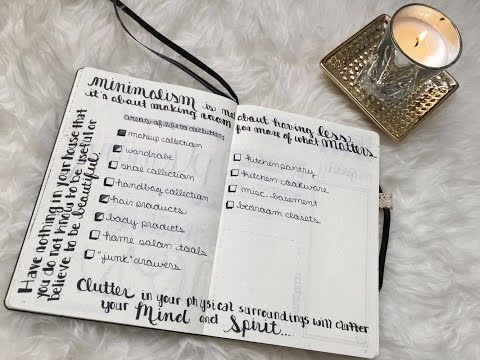 minimalism is not about having less,
it's about making room for more of what matters.
areas of life to declutter
makeup collection
wardrobe
shoe collection
handbag collection
hair products
body products
home salon tools
"junk" drawers
kitchen pantry
kitchen cookware
misc. basement
bedroom closets
Have nothing in your house that
you do not know to be useful or
believe to be beautiful.
Clutter in your physical surroundings will clutter
your Mind and Spirit...